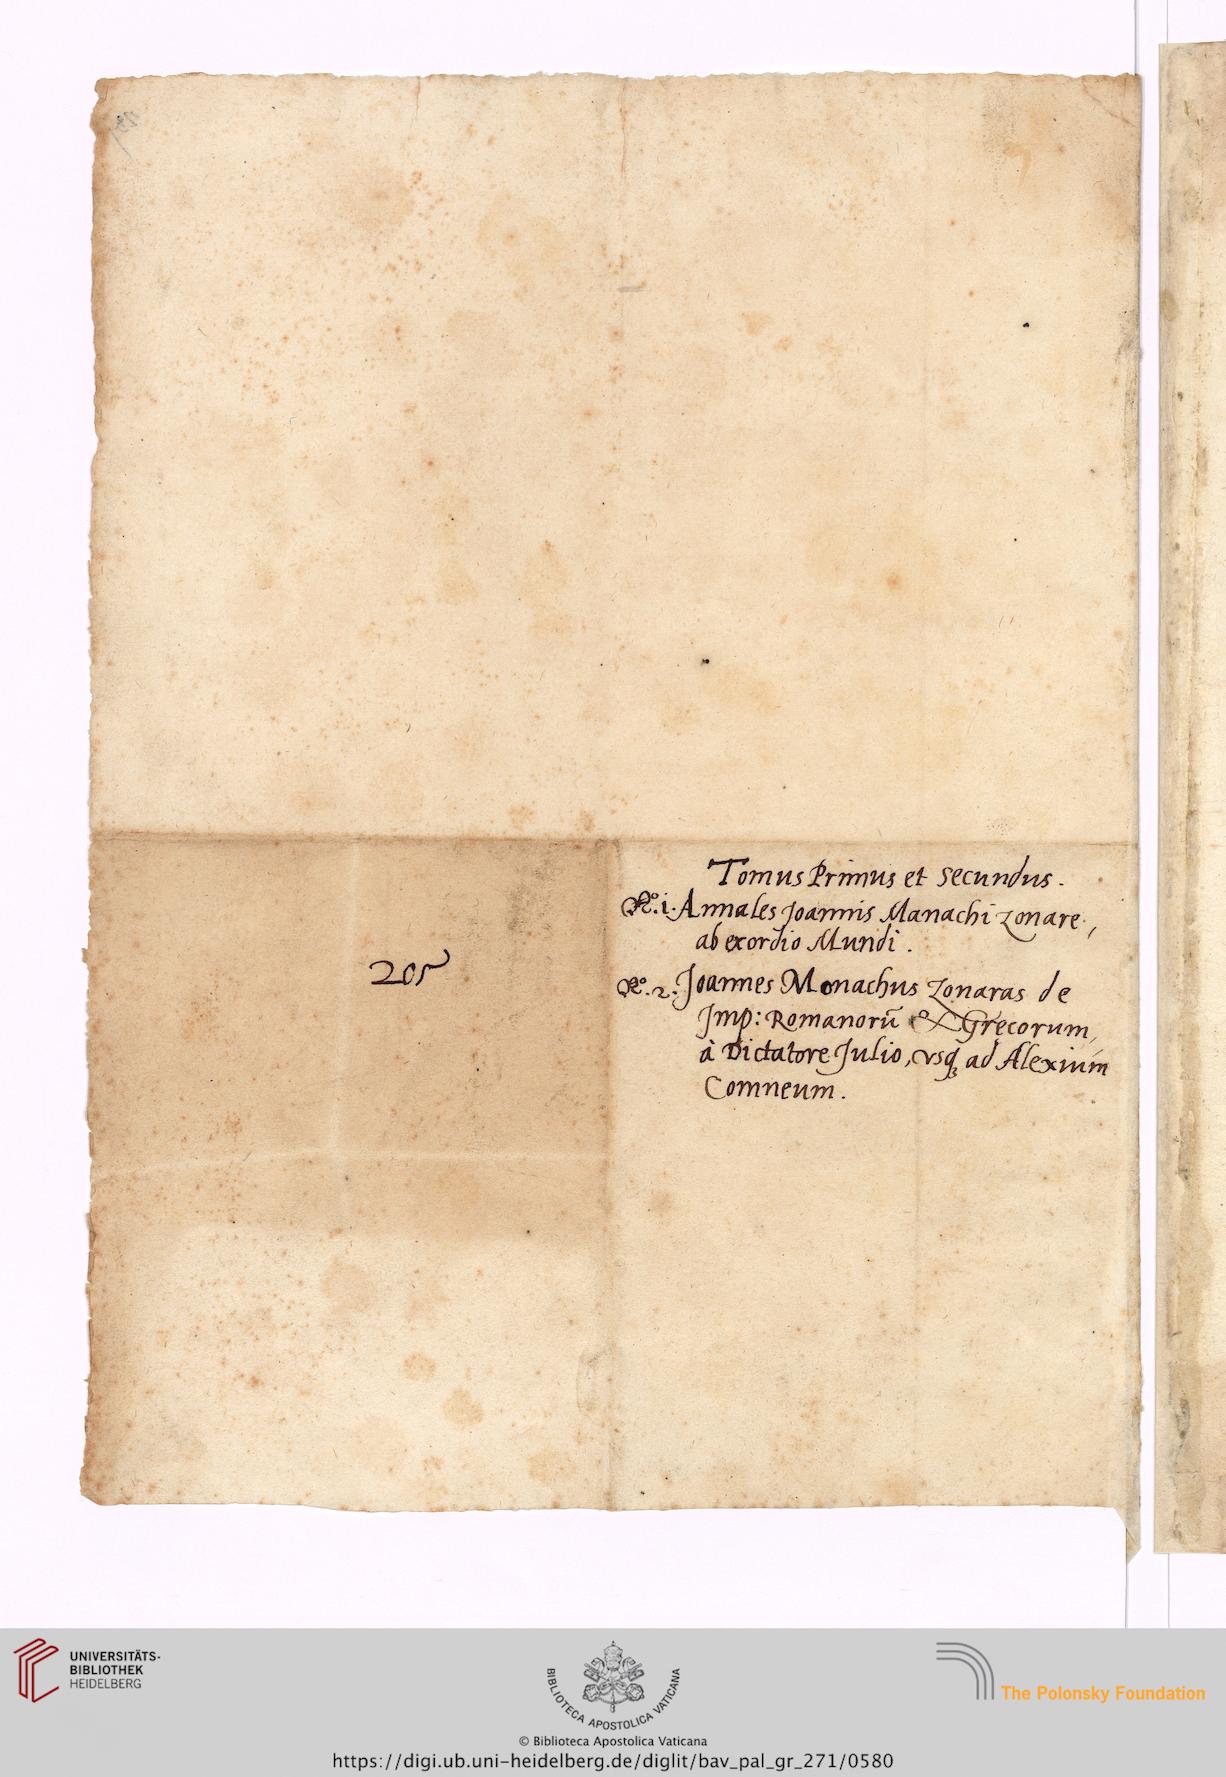 Tomus Primus et secundus.
No. i. Annales Joannis Manachi zonare,
ab exordio Mundi.
205
No. 2. Joannes Monachus zonaras de
Jmp: Romanorū & Gręcorum,
à Dictatore Julio, vsq; ad Alexium
Comneum.
UNIVERSITÄTS-
BIBLIOTHEK
HEIDELBERG
BIBLIOTECA APOSTOLICA VATICANA
The Polonsky Foundation
© Biblioteca Apostolica Vaticana
https://digi.ub.uni-heidelberg.de/diglit/bav_pal_gr_271/0580